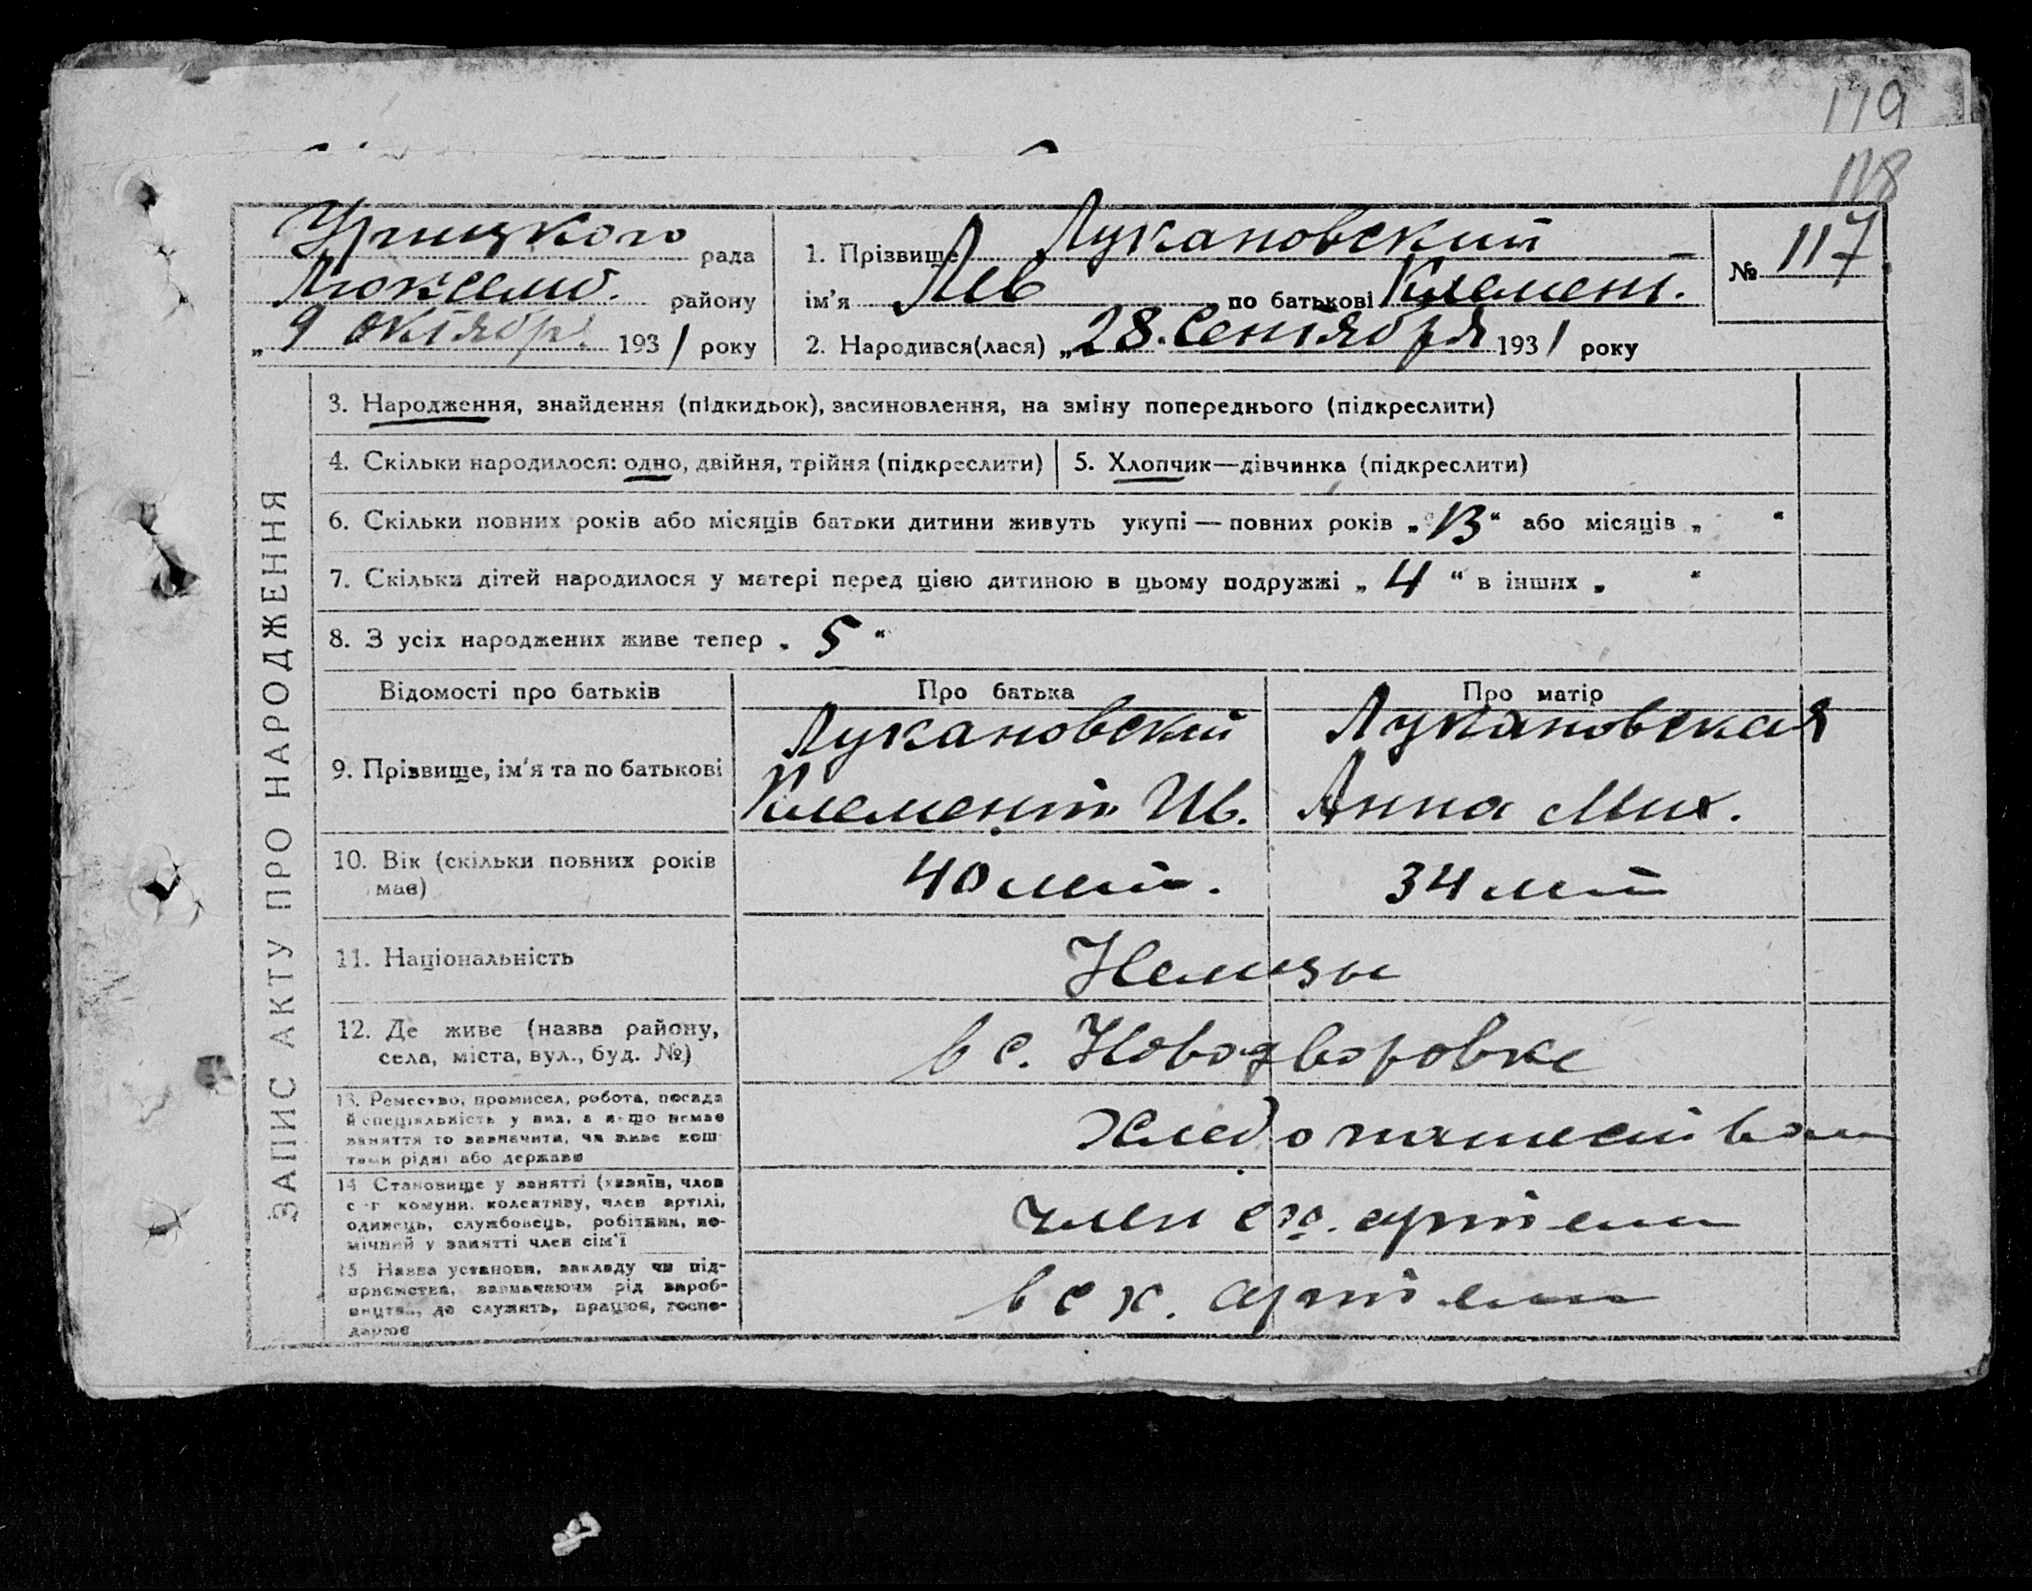 119
118
Урицкого рада
Люксемб. району
„ 9 октябр. 1931 року
1. Прізвище Лукановский
ім'я Лев по батькові Клемент.
2. Народився(лася) „28. Сентября 1931 року
№ 117
ЗАПИС АКТУ ПРО НАРОДЖЕННЯ
3. Народження, знайдення (підкидьок), засиновлення, на зміну попереднього (підкреслити)
4. Скільки народилося: одно, двійня, трійня (підкреслити) 5. Хлопчик—дівчинка (підкреслити)
6. Скільки повних років або місяців батьки дитини живуть укупі — повних років „13“ або місяців „ “
7. Скільки дітей народилося у матері перед цією дитиною в цьому подружжі „ 4 “ в інших „ “
8. З усіх народжених живе тепер „ 5 “
Відомості про батьків Про батька Про матір
9. Прізвище, ім'я та по батькові
Лукановский
Клементий Ив.
Лукановская
Анна Мих.
10. Вік (скільки повних років
має)
40 лет.
34 лет
11. Національність
Немцы
12. Де живе (назва району,
села, міста, вул., буд. №)
в с. Новодворовке
13. Ремество, промисел, робота, посада
й спеціяльність у них, а якщо немає
заняття то зазначити, чи живе кош-
тами рідні або держави
Хлебопашеством
14 Становище у занятті (хазяїн, член
с-г комуни, колективу, член артілі,
одинець, службовець, робітник, по-
мічний у занятті член сім'ї
член с.х. артели
15 Назва установи, закладу чи під-
приємства, зазначаючи рід вироб-
ництва, де служить, працює, госпо-
дарює
в с х. артели